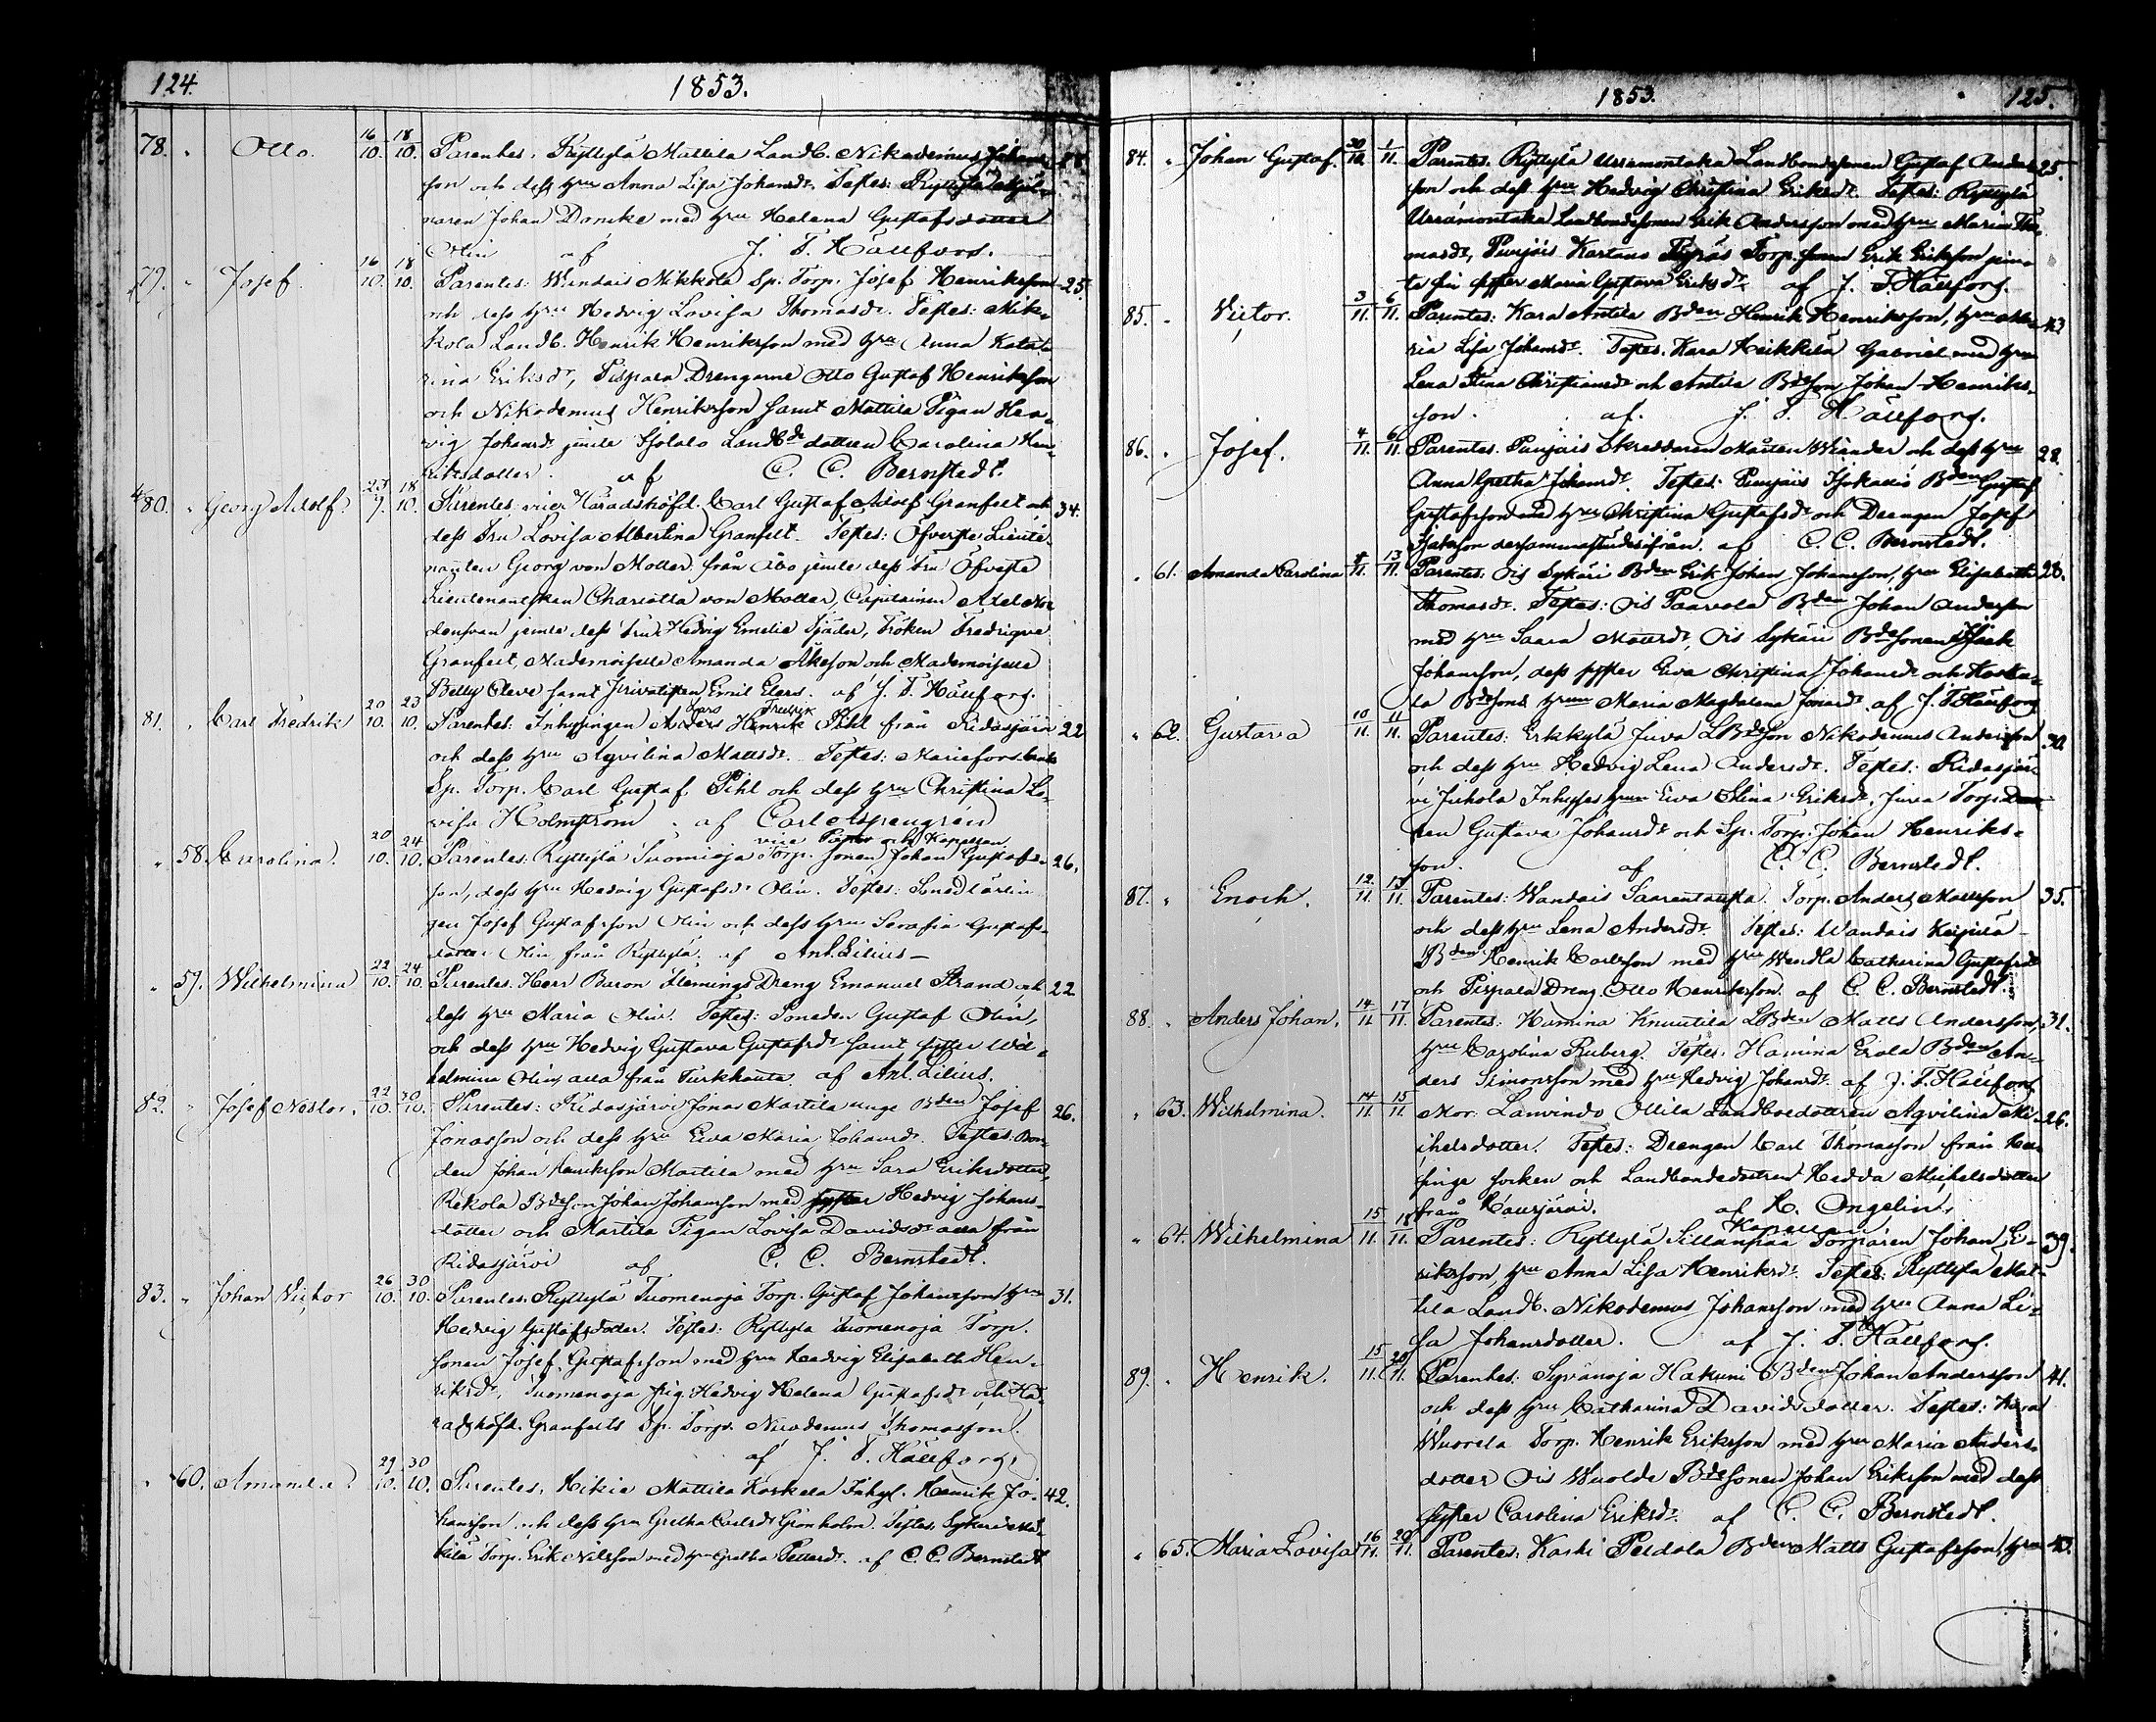 124. 1853.
78. " Otto. 16/10. 18/10. Parentes. Ryttylä Mattila Landb. Nikodemus Johans
son och dess Hru Anna Lisa Johansdr. Testes: Ryttylä Mjöl-
naren Johan Doncke med Hru Helena Gustafsdotter
Olin af J. T. Hällfors.
79. " Josef. 16/10. 18/10. Parentes: Wandais Nikkola Sp. Torp. Josef Henriksson 25.
och dess Hru Hedvig Lovisa Thomasdr. Testes: Nik-
kola Landb. Henrik Henriksson med Hru Anna Kata-
rina Eriksdr, Pispala Drengarne Otto Gustaf Henriksson
och Nikodemus Henriksson samt Mattila Pigan Hed-
vig Johansdr jemte Landbde dottren Carolina Hen-
riksdotter. af C. C. Bernstedt.
80. " Georg Adolf. 23/9. 18/10. Parentes: vice Häradshöfd. Carl Gustaf Adolf Granfelt och 34.
dess Fru Lovisa Albertina Granfelt. Testes: Öfverste Lieute-
nanten Georg von Moller från Åbo jemte dess Fru Öfverste
Lieutenantskan Charlotta von Moller, Capitainen Axel Nor
densvan jemte dess Fru Hedvig Emelie Tjäder, Fröken Fredrique
Granfelt, Mademoiselle Amanda Åkeson och Mademoiselle
Betty Cleve samt Privatisten Emil Elers. af J. T. Hällfors.
81. " Carl Fredrik 20/10. 23/10. Parentes: Inhysingen Anders Henrik Pihl från Ridasjärvi 22
Lars Fredrik
och dess Hru Aqvilina Mattsdr. Testes: Mariefors bruks
Sp. Torp. Carl Gustaf Pihl och dess Hru Christina Lo-
visa Holmström. af Carl Aspengrén
vice Pastor och Kapellan
" 58. Carolina. 20/10. 24/10. Parentes: Ryttylä Tuomioja Torp. sonen Johan Gustafs- 26.
son, dess Hru Hedvig Gustafsdr Olin. Testes: Smedlärlin
gen Josef Gustafsson Olin och dess Hru Serafia Gustafs-
dotter Olin från Ryttylä. af Ant. Lilius.
" 59. Wilhelmina 22/10. 24/10. Parentes. Herr Baron Flemings Dreng Emanuel Strand och 22
dess Hru Maria Olin. Testes: Smeden Gustaf Olin,
och dess Hru Hedvig Gustava Gustafsdr samt syster Wil-
helmina Olin, alla från Turkhauta. af Ant. Lilius.
82. " Josef Nestor. 22/10. 30/10. Parentes: Ridasjärvi Jonas Martila unge Bden Josef 26.
Jonasson och dess Hru Eva Maria Johansdr. Testes: Bon-
den Johan Henriksson Martila med Hru Sara Eriksdotter,
Rekola Bdeson Johan Johansson med syster Hedvig Johans-
dotter och Martila Pigan Lovisa Davidsdr alla från
Ridasjärvi af C. C. Bernstedt.
83. " Johan Victor 26/10. 30/10. Parentes. Ryttylä Tuomenoja Torp. Gustaf Johansson, Hru 31.
Hedvig Gustafsdotter. Testes: Ryttylä Tuomenoja Torp.
sonen Josef Gustafsson med Hru Hedvig Elisabeth Hen-
riksdr, Tuomenoja pig. Hedvig Helena Gustafsdr och Hä-
radshöfd. Granfelts Sp. Torp. Nicodemus Thomasson.
af J. T. Hällfors.
" 60. Amanda 29/10. 30/10. Parentes. Hikia Mattila Koskela Inhys. Henrik Jo- 42.
hansson och dess Hru Gretha Carlsdr Grönholm. Testes: Sykäri
Torp. Erik Nilsson med Hru Gretha Pettersdr. af C. C. Bernstedt
1853. 125.
84. " Johan Gustaf. 30/10. 1/11. Parentes: Ryttylä Urramontaka Landbondesonen Gustaf Anders- 25.
son och dess Hru Hedvig Christina Eriksdr. Testes: Ryttylä
Urrämontaka Landbondesonen Erik Andersson med Hru Maria Tho-
masdr, Punjois Kartano Torp. sonen Erik Eriksson jem-
te sin syster Maria Gustava Eriksdr. af J. T. Hällfors.
85. " Victor. 3/11. 6/11. Parentes: Kara Anttila Bden Henrik Henriksson, Hru Ma- 43
ria Lisa Johansdr. Testes. Kara Heikkilä Gabriel med Hru
Lena Stina Christiansdr och Anttila Bdeson Johan Henriks-
son. af. J. T. Hällfors.
86. " Josef. 4/11. 6/11. Parentes. Punjais Skreddaren Mårten Wiander och dess Hru 28.
Anna Gretha Johansdr. Testes: Punjais Bden Gustaf
Gustafsson med Hru Christina Gustafsdr och Drengen Josef
Isaksson dersammastädesifrån. af C. C. Bernstedt.
" 61. Amanda Karolina 8/11. 13/11. Parentes: Ois Sykäri Bden Erik Johan Johansson, Hru Elisabeth 28.
Thomasdr. Testes: Ois Paavola Bden Johan Andersson
med Hru Saara Mattsdr, Ois Sykäri Bdesonen Isak
Johansson, dess syster Eva Christina Johansdr och
la Bdesons Hru Maria Magdalena af J. T. Hällfors
" 62. Gustava 10/11. 11/11. Parentes: Erkkylä Juva LBdeson Nikodemus Andersson 30.
och dess Hru Hedvig Lena Andersdr. Testes: Ridasjär-
vi Jukola Inhyses Hru Eva Stina Eriksdr, Juva Torp.
ren Gustava Johansdr och Sp. Torp. Johan Henriks-
son. af C. C. Bernstedt.
87. " Enoch. 12/11. 13/11. Parentes: Wandais Saarentausta Torp. Anders Mattsson 35.
och dess Hru Lena Andersdr. Testes: Wandais Keijulä
Bden Henrik Carlsson med Hru Wendla Catharina Gustafsdr
och Pispala Dreng Otto Henriksson. af C. C. Bernstedt.
88. " Anders Johan. 14/11. 17/11. Parentes: Hamina Knuutila LBden Matts Andersson, 31.
Hru Carolina Ruberg. Testes. Hamina Erola Bden An-
ders Simonsson med Hru Hedvig Johansdr. af J. T. Hällfors
" 63. Wilhelmina. 14/11. 15/11. Mor: Lanvindo Ollila Landboedottren Aqvilina Mi- 26.
chelsdotter. Testes: Drengen Carl Thomasson från Hau-
singe socken och Landbondedottren Hedda Michelsdotter
från Kaurjärvi. af K. Ongelin,
Kapellan
" 64. Wilhelmina 15/11. 18/11. Parentes: Ryttylä Sillanpää Torparen Johan E- 39.
riksson, Hru Anna Lisa Henriksdr. Testes: Ryttylä Mat-
tila Landb. Nikodemus Johansson med Hru Anna Li-
sa Johansdotter. af J. T. Hällfors.
89. " Henrik. 15/11. 20/11. Parentes: Syvänoja Hakuni Bden Johan Andersson 41.
och dess Hru Catharina Davidsdotter. Testes: Kara
Wuorela Torp. Henrik Eriksson med Hru Maria Anders-
dotter Ois Wuolde Bdesonen Johan Eriksson med dess
syster Carolina Eriksdr. af C. C. Bernstedt.
" 65. Maria Lovisa 16/11. 20/11. Parentes: Karhi Perdola Bden Matts Gustafsson, Hru